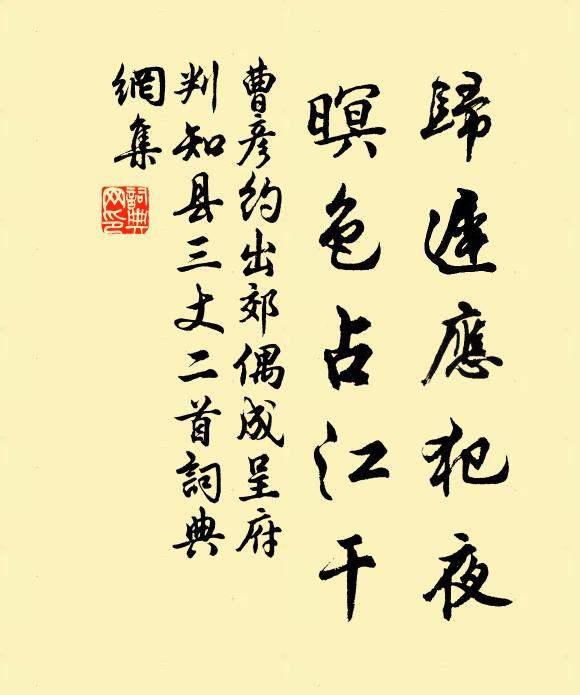 歸遲應犯夜
暝色占江干
曹彦約出郊偶成呈府
判知县三丈二首詞典
網集
詞典
网印